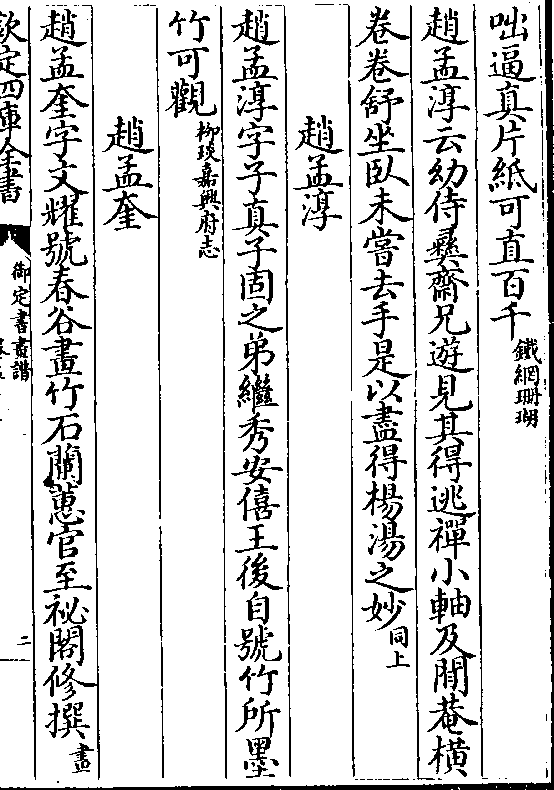 咄逼真片紙可直百千鐵網珊瑚
趙孟淳云幼侍彛齋兄遊見其得逃禪小軸及閒菴橫
卷卷舒坐臥未嘗去手是以盡得楊湯之妙同上
趙孟淳
趙孟淳字子真子固之弟繼秀安僖王後自號竹所墨
竹可觀柳琰嘉興府志
趙孟奎
趙孟奎字文耀號春谷畫竹石蘭蕙官至祕閣修撰畫
欽定四庫全書
御定書畫譜
二